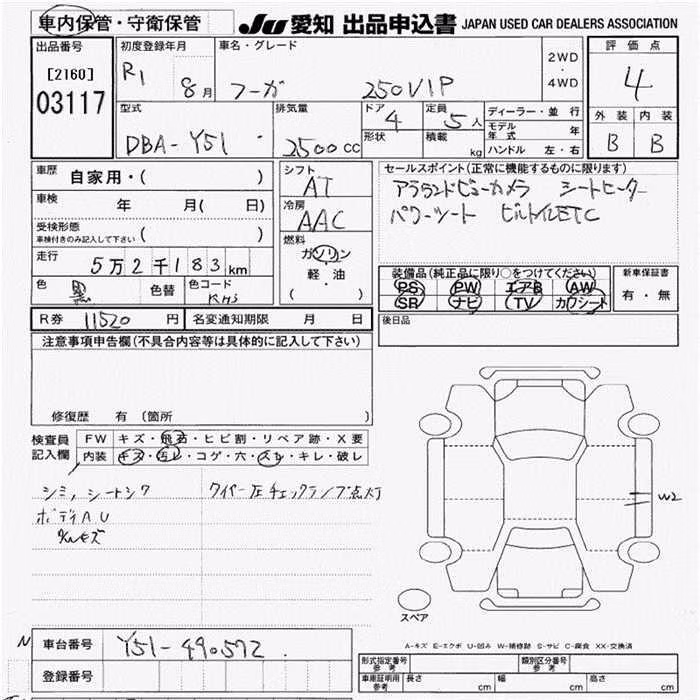 車内保管・守衛保管
JU 愛知 出品申込書 JAPAN USED CAR DEALERS ASSOCIATION
出品番号 初度登録年月 車名・グレード 2WD ・ 4WD 評価点
[2160]
03117 R1 8月 フーガ 250VIP 4
型式 排気量 ドア 4 定員 5人 ディーラー・並行 外装 内装
DBA-Y51 2500cc 形状 積載 kg モデル年式 年 B B
ハンドル 左・右
車歴 自家用・( )
シフト AT
セールスポイント(正常に機能するものに限ります)
車検 年 月( 日)
冷房 AAC
アラウンドビューカメラ シートヒーター
パワーシート ビルトインETC
受検形態 車検付きのみ記入して下さい ( )
燃料 ガソリン 軽・油 ( )
走行 5万2千183km
装備品(純正品に限り○をつけてください) 新車保証書
PS PW エアB AW 有・無
SR ナビ TV カワシート
色 黒 色替 色コード
R券 11520円 名変通知期限 月 日
後日品
注意事項申告欄(不具合内容等は具体的に記入して下さい)
修復歴 有(箇所
検査員 記入欄
FW キズ・飛石・ヒビ割・リペア跡・X要
内装 キズ・汚レ・コゲ・穴・スレ・キレ・破レ
シミ, シートシワ ワイパー圧チェックランプ点灯
ボディAU
W2
スペア
A-キズ E-エクボ U-凹み W-補修跡 S-サビ C-腐食 XX-交換済
N 車台番号 Y51-490572
登録番号
形式指定番号 参考 類別区分番号 参考
車庫証明用 参考 長さ cm 幅 cm 高さ cm